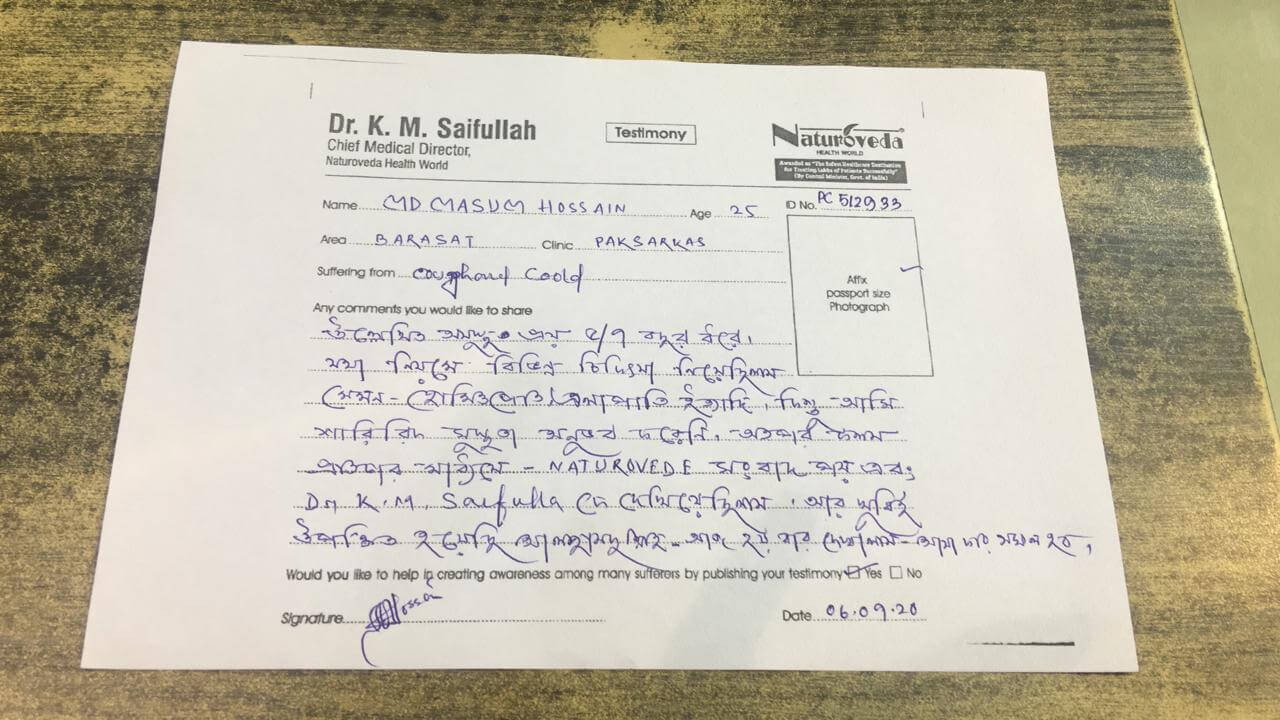 Dr. K. M. Saifullah
Chief Medical Director,
Naturoveda Health World
Testimony
Naturoveda
HEALTH WORLD
Awarded as "The Safest Healthcare Destination
for Treating Lakhs of Patients Successfully"
(By Central Minister, Govt. of India)
Name MD MASUM HOSSAIN Age 25 ID No. PC 512933
Area BARASAT Clinic PAKSARKAS
Suffering from Coughand Coold
Affix
passport size
Photograph
Any comments you would like to share
উল্লেখিত অসুস্থ প্রায় ৫/৭ বছর ধরে।
যথা নিয়মে বিভিন্ন চিকিৎসা নিয়েছিলাম
যেমন - হোমিওপ্যাথি ইত্যাদি, কিন্তু আমি
শারিরিক সুস্থতা অনুভব করেনি।
মাধ্যমে - NATUROVEDE এবং
Dr K.M. Saifulla কে দেখিয়েছিলাম। আর খুবই
উপকৃত হয়েছি
Would you like to help in creating awareness among many sufferers by publishing your testimony Yes No
Signature Hossain
Date 06.09.20